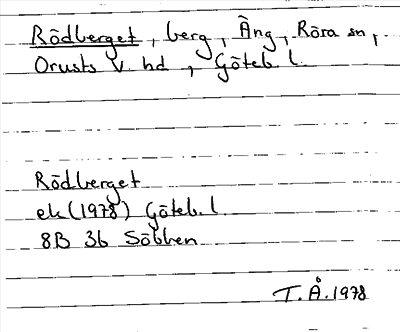 Rödberget, berg, Äng, Röra sn,
Orusts v. hd, Göteb. l.
Rödberget
ek (1978) Göteb. l.
8B 3b Söbben
T. Å. 1978